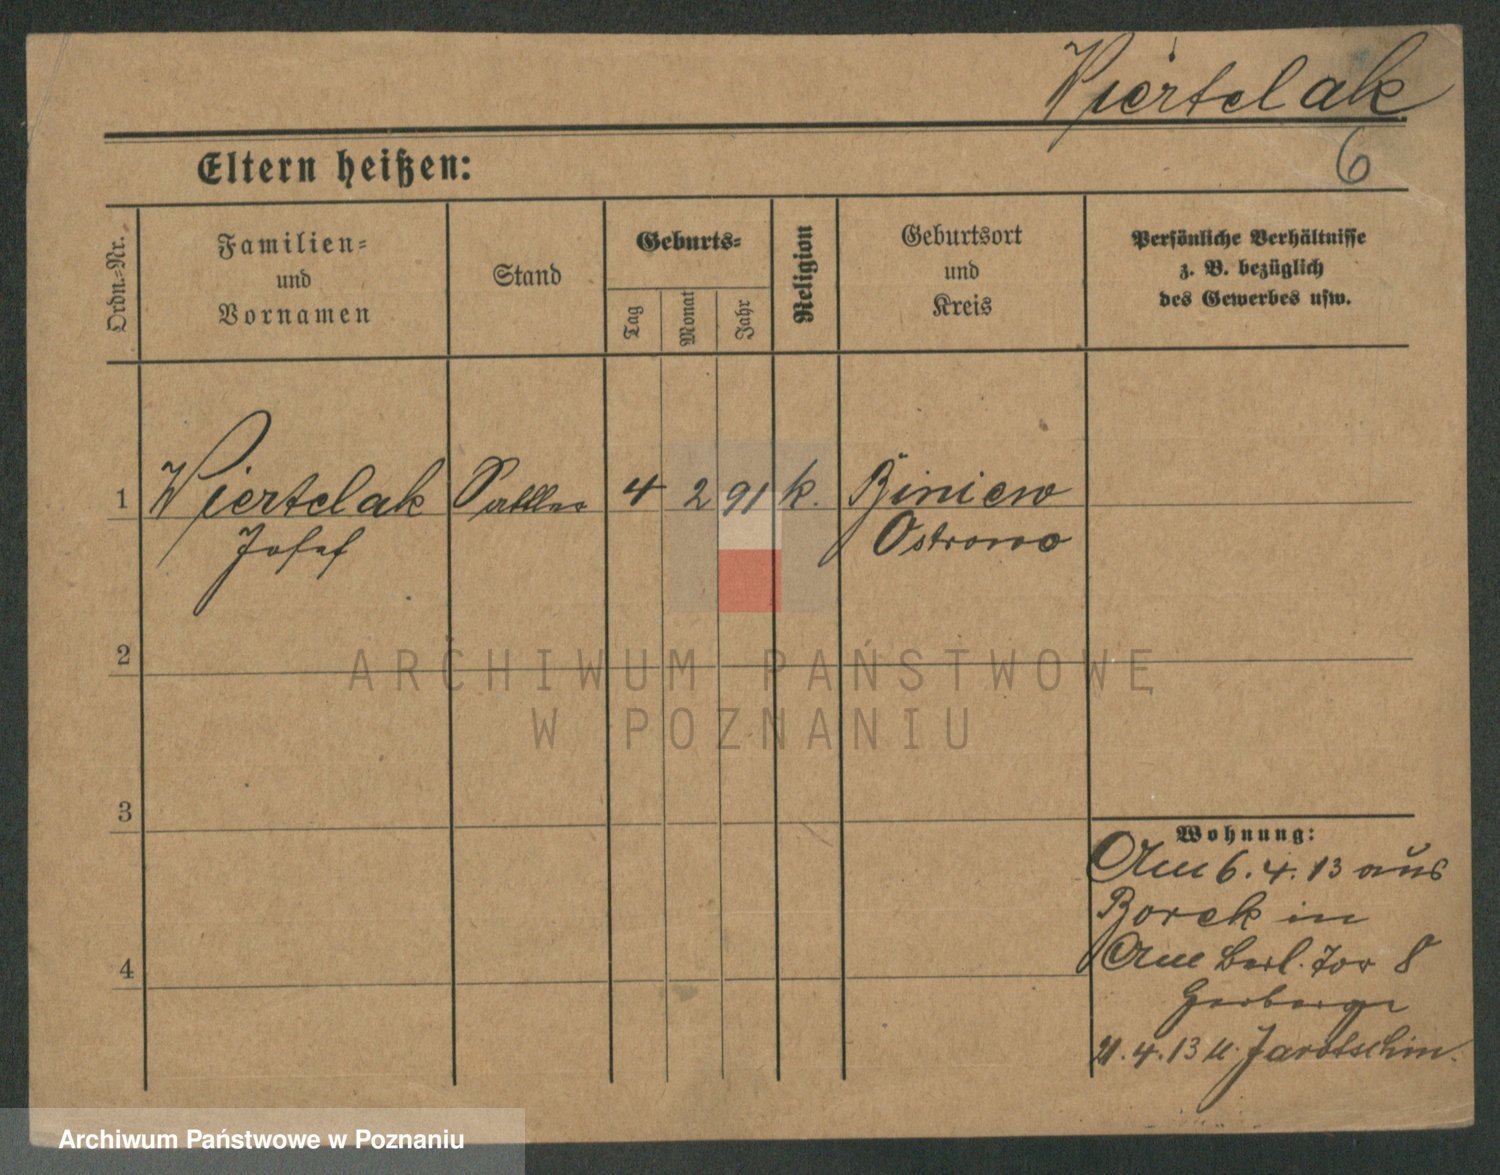 Wiertelak
6
Eltern heißen:
Ordn.-Nr.
Familien-
und
Vornamen
Stand
Geburts-
Tag
Monat
Jahr
Religion
Geburtsort
und
Kreis
Persönliche Verhältnisse
z. B. bezüglich
des Gewerbes usw.
1 Wiertelak Sattler 4 2 91 k. Biniew
Josef Ostrowo
2
ARCHIWUM PAŃSTWOWE
W POZNANIU
3
Wohnung:
Am 6. 4. 13 aus
Borek in
Am Berl. Tor 8
Herberge
21. 4. 13 n. Jarotschin.
4
Archiwum Państwowe w Poznaniu